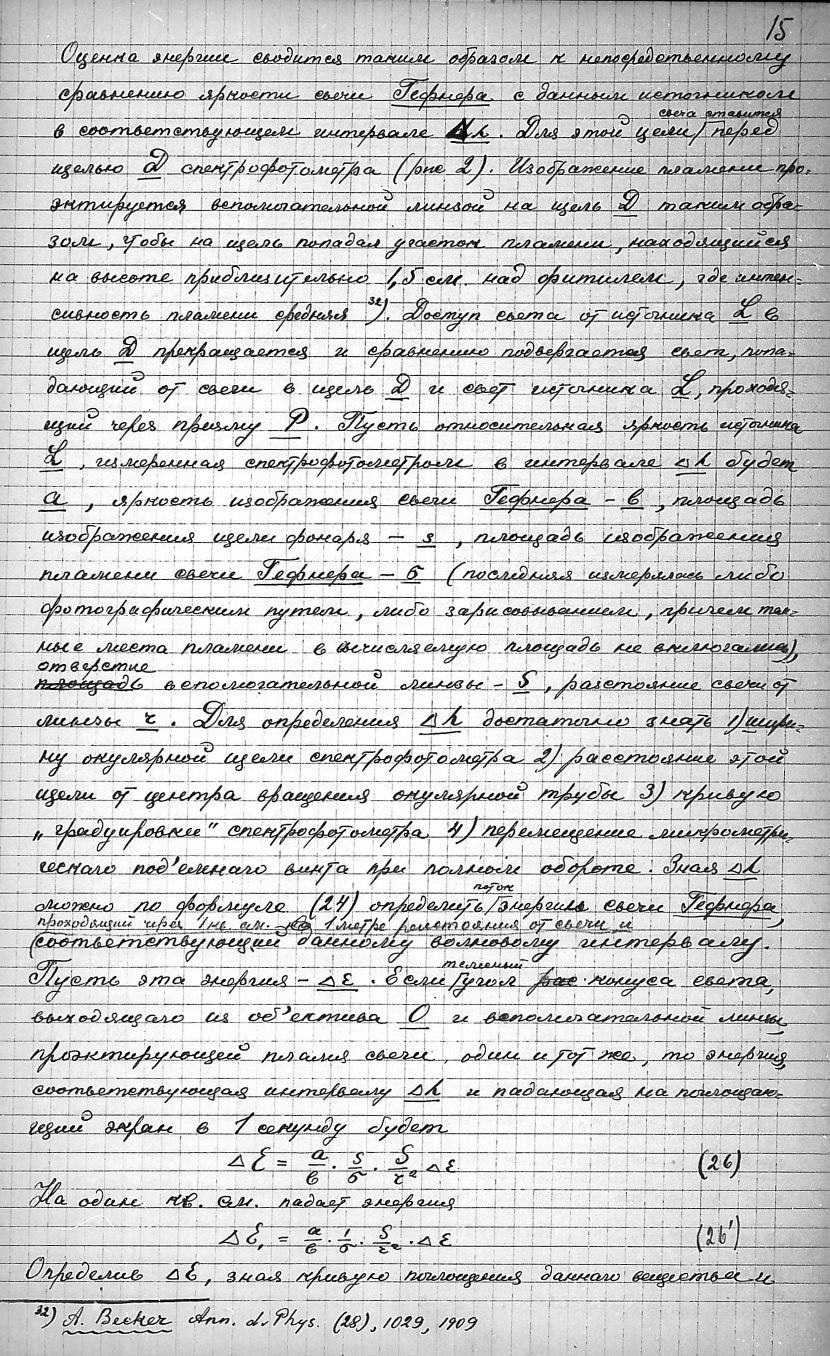 15
Оценка энергии сводится таким образом к непосредственному
сравнению яркости свечи Гефнера с данным источником
в соответствующем интервале Δλ. Для этой цели свеча ставится перед
щелью D спектрофотометра (рис 2). Изображение пламени про-
эктируется вспомогательной линзой на щель D таким обра-
зом, чтобы на щель попадал участок пламени, находящийся
на высоте приблизительно 1,5 см. над фитилем, где интен-
сивность пламени средняя 32). Доступ света от источника L в
щель D прекращается и сравнению подвергается свет, попа-
дающий от свечи в щель D и свет источника L, проходя-
щий через призму P. Пусть относительная яркость источника
L, измеренная спектрофотометром в интервале Δλ будет
a, яркость изображения свечи Гефнера – в, площадь
изображения щели фонаря – s, площадь изображения
пламени свечи Гефнера – σ (последняя измерялась либо
фотографическим путем, либо зарисовыванием, причем тем-
ные места пламени в вычисляемую площадь не включались),
отверстие вспомогательной линзы – S, расстояние свечи от
линзы r. Для определения Δλ достаточно знать 1) шири-
ну окулярной щели спектрофотометра 2) расстояние этой
щели от центра вращения окулярной трубы 3) кривую
„градуировки" спектрофотометра 4) перемещение микрометри-
ческаго под'емнаго винта при полном обороте. Зная Δλ
можно по формуле (24) определить поток энергии свечи Гефнера,
проходящий через 1 кв. см. на 1 метре расстояния от свечи и
соответствующий данному волновому интервалу.
Пусть эта энергия – Δε. Если телесный угол конуса света,
выходящаго из об'ектива O и вспомогательной линзы,
проэктирующей пламя свечи, один и тот же, то энергия,
соответствующая интервалу Δλ и падающая на поглощаю-
щий экран в 1 секунду будет
Δℰ = a/в · s/σ · S/r² Δε (26)
На один кв. см. падает энергия
Δℰ₁ = a/в · 1/σ · S/r² · Δε (26')
Определив Δℰ, зная кривую поглощения даннаго вещества и
32) A. Becker Ann. d. Phys. (28), 1029, 1909